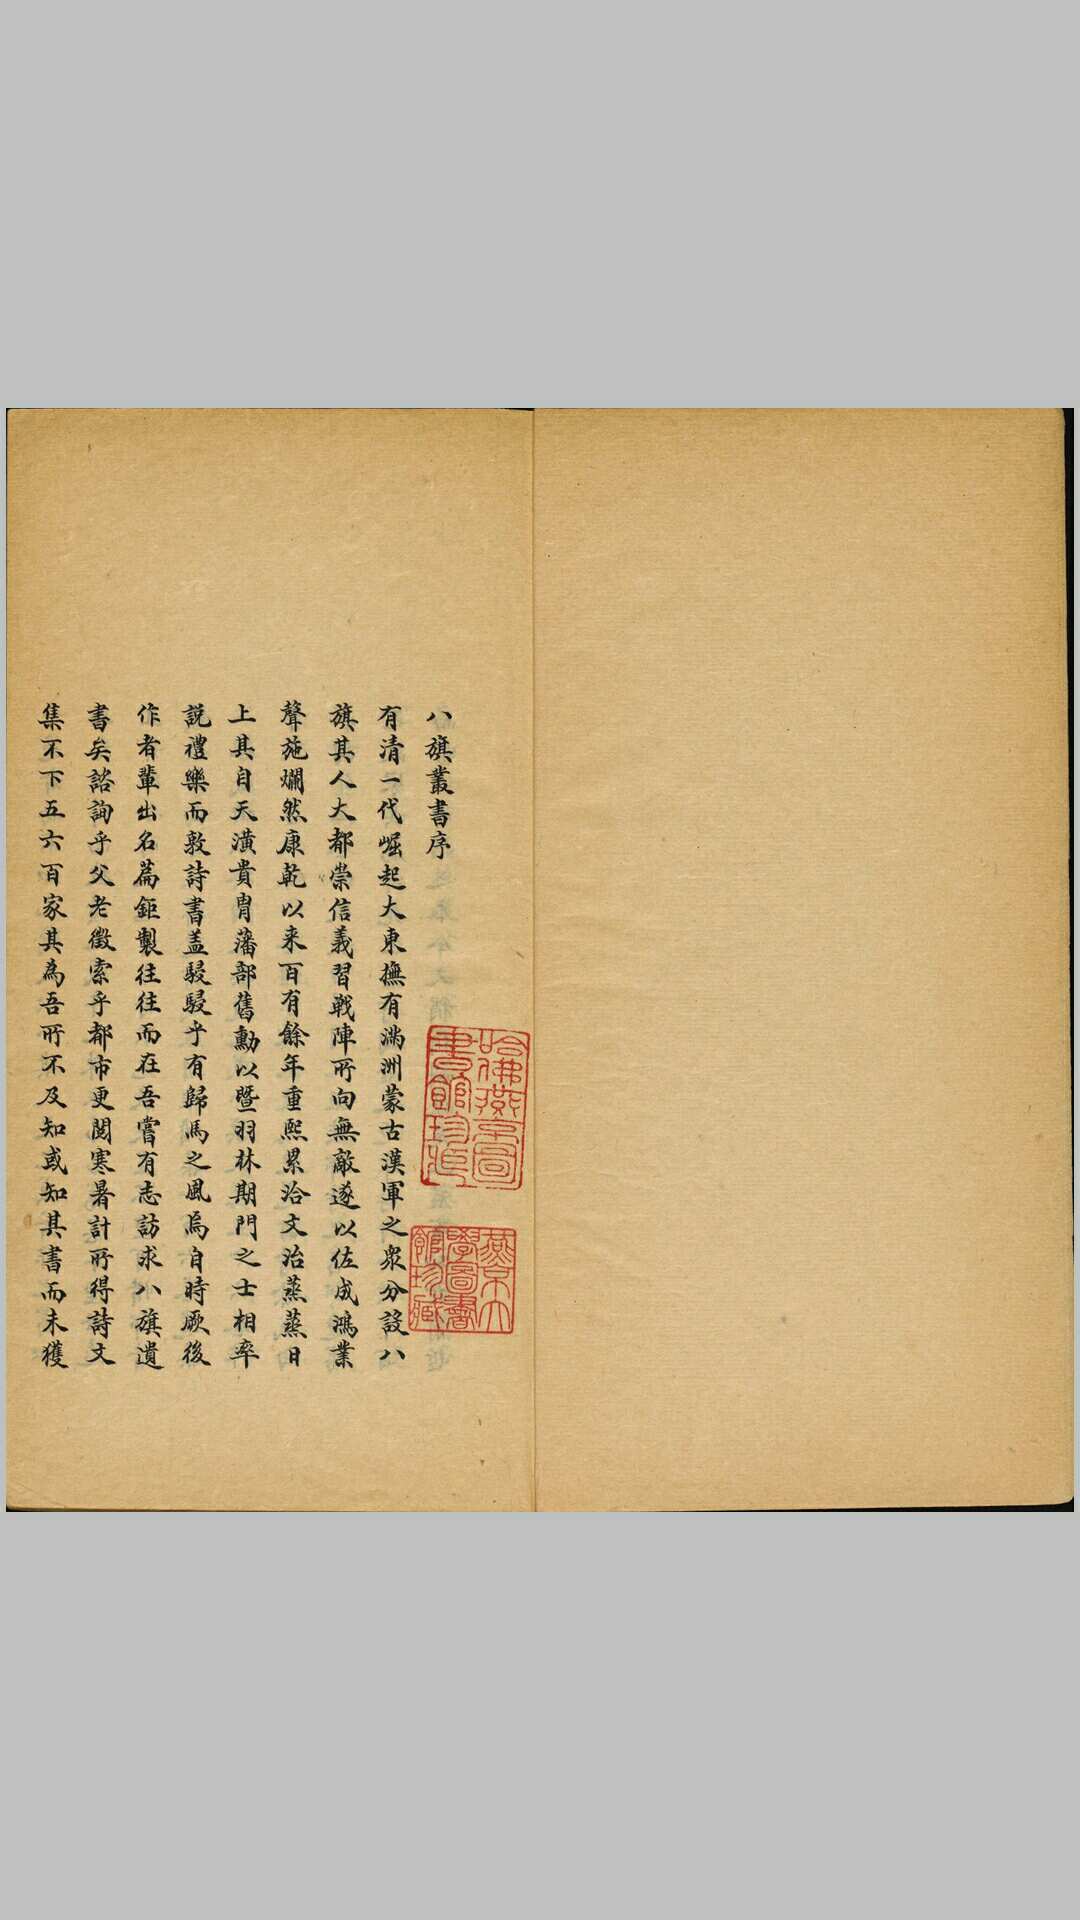 八旗叢書序
有清一代崛起大東撫有滿洲蒙古漢軍之衆分設八
旗其人大都崇信義習戰陣所向無敵遂以佐成鴻業
聲施爛然康乾以来百有餘年重熙累洽文治蒸蒸日
上其自天潢貴胄藩部舊勳以暨羽林期門之士相率
説禮樂而敦詩書蓋駸駸乎有歸馬之風焉自時厥後
作者輩出名篇鉅製往往而在吾嘗有志訪求八旗遺
書矣諮詢乎父老徵索乎都市更閲寒暑計所得詩文
集不下五六百家其為吾所不及知或知其書而未獲
哈佛燕京圖
書館珍藏
燕京大
學圖書
館珍藏